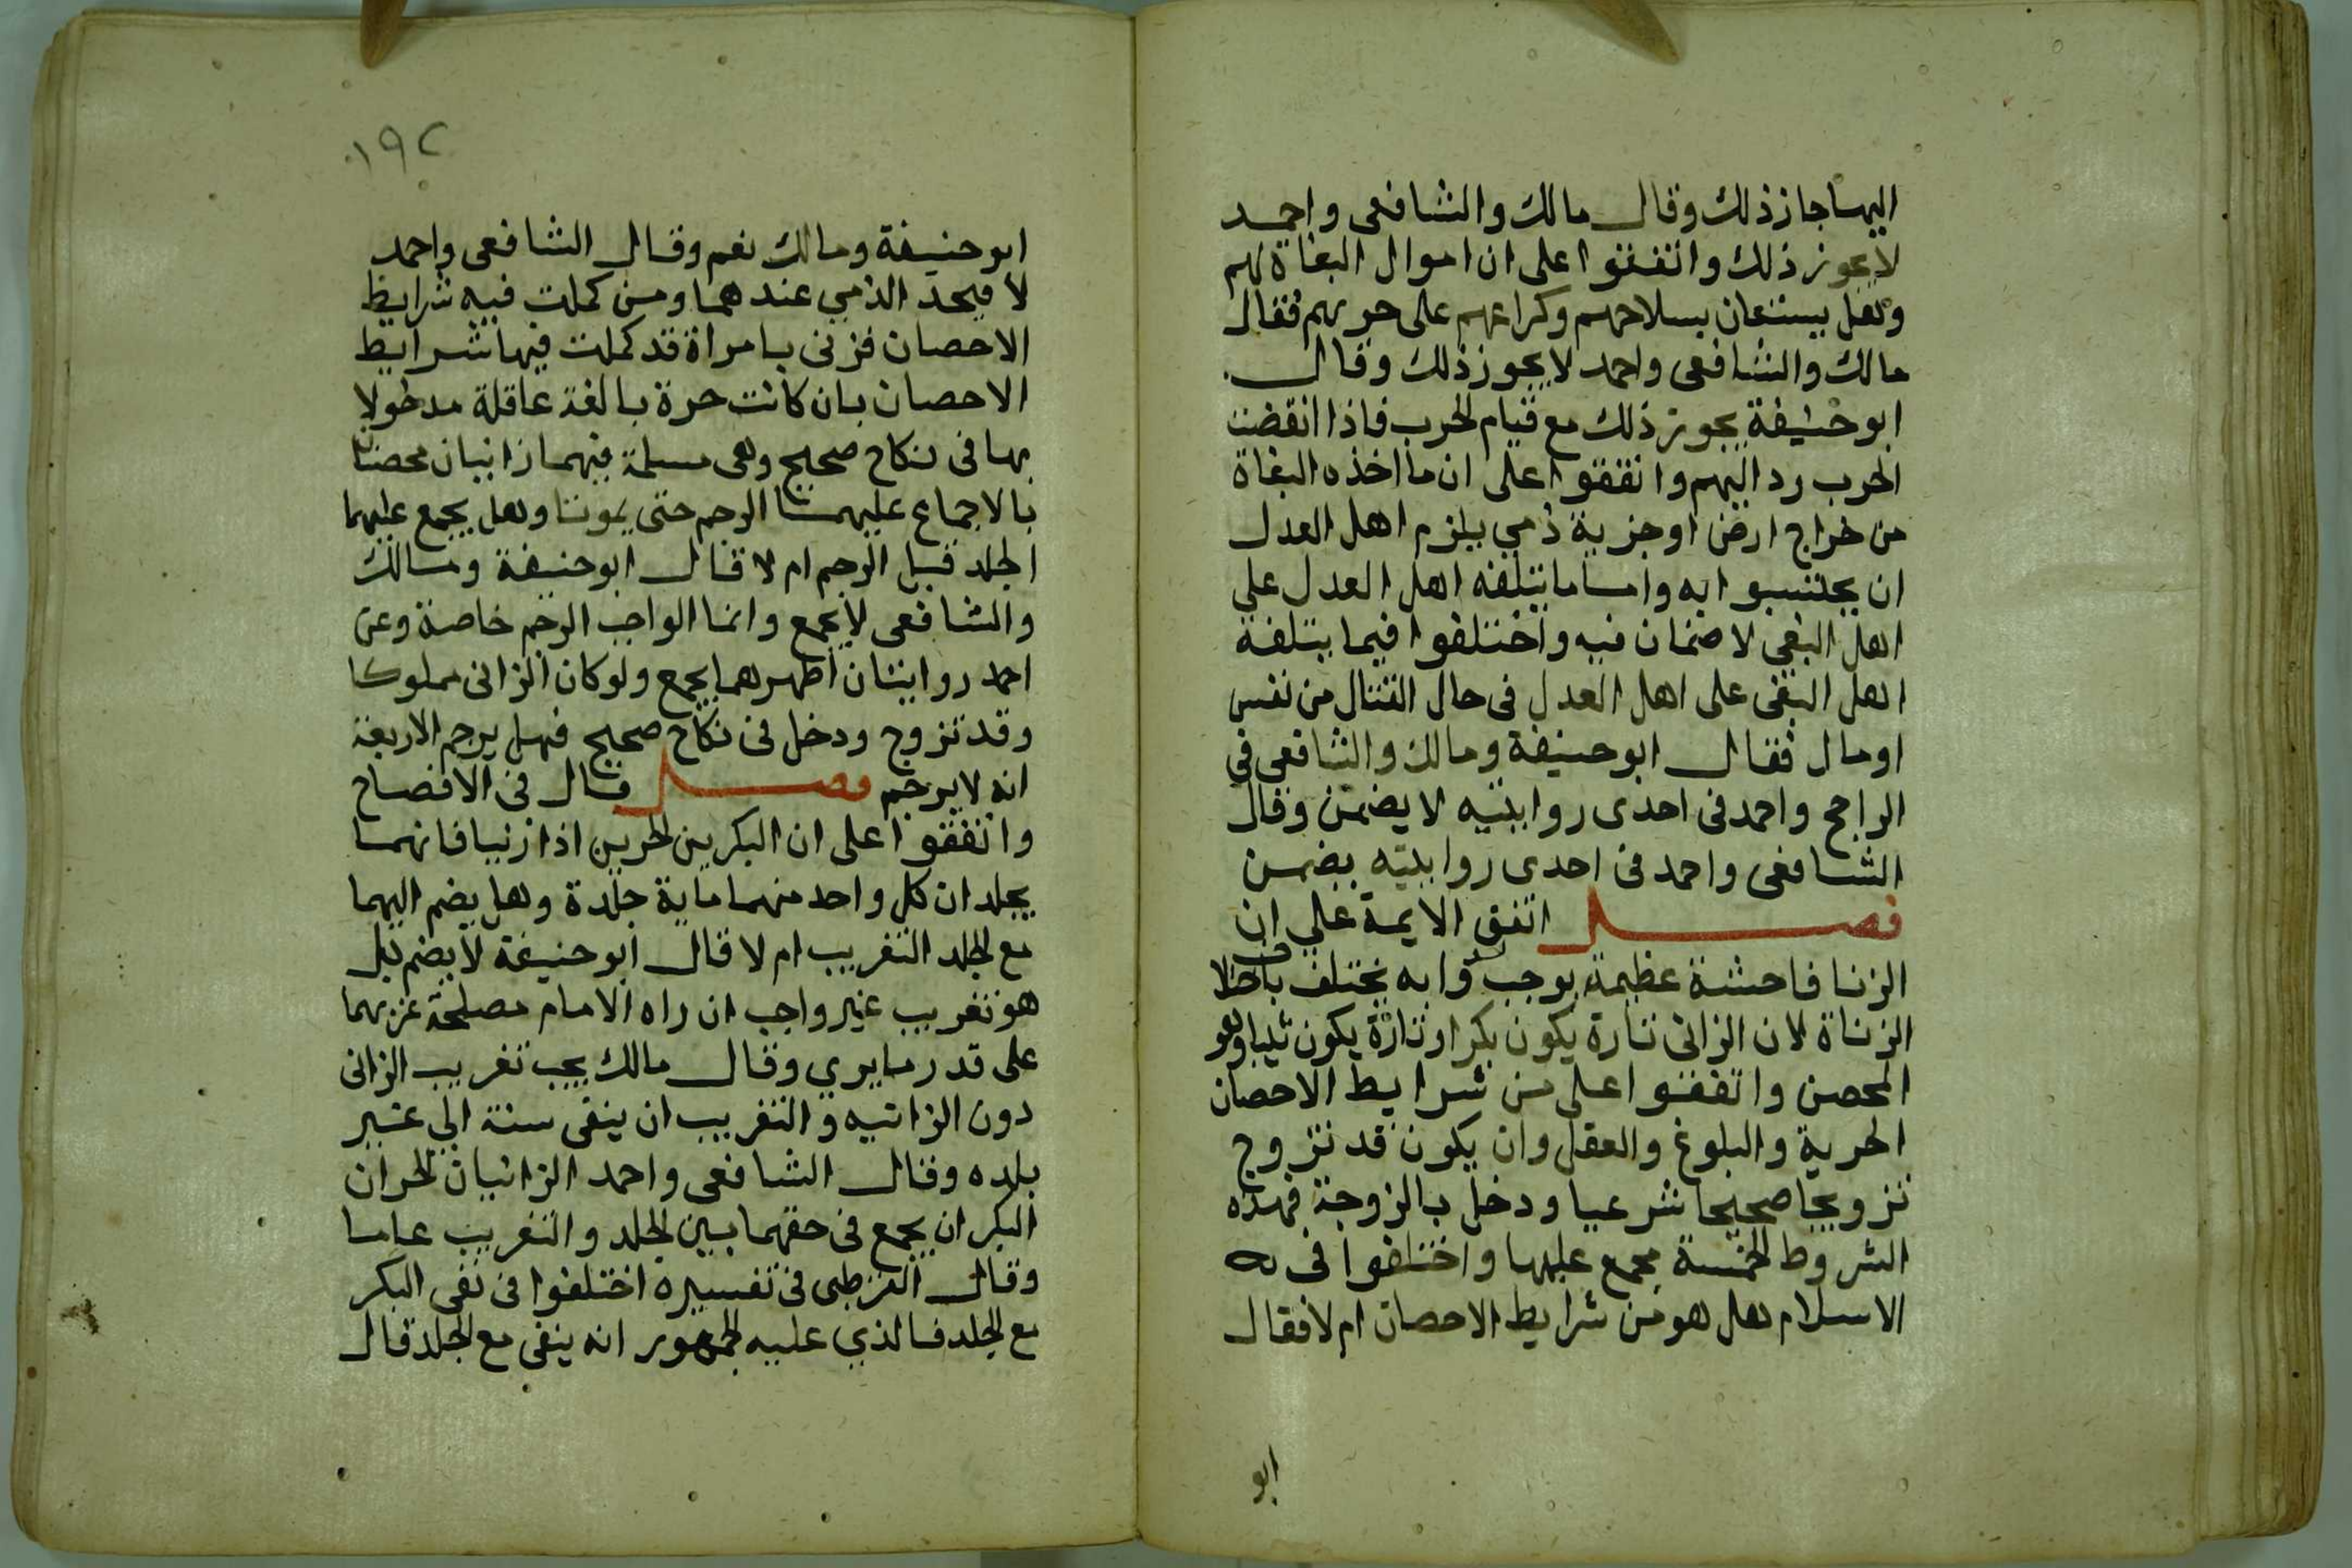 اليها جاز ذلك وقال مالك والشافعى واحمد
لا يجوز ذلك واتفقوا على ان اموال البغاة لهم
وهل يستعان بسلاحهم وكراعهم على حربهم فقال
مالك والشافعى واحمد لا يجوز ذلك وقال
ابو حنيفة يجوز ذلك مع قيام الحرب فاذا انقضت
الحرب رد اليهم واتفقوا على ان ما اخذه البغاة
من خراج ارض او جزية ذمي يلزم اهل العدل
ان يحتسبوا به واما ما يتلفه اهل العدل علي
اهل البغي لا ضمان فيه واختلفوا فيما يتلفه
اهل البغى على اهل العدل فى حال القتال من نفس
او مال فقال ابو حنيفة ومالك والشافعى في
الراجح واحمد فى احدى روايتيه لا يضمن وقال
الشافعى واحمد فى احدى روايتيه يضمن
فصل اتفق الايمة علي ان
الزنا فاحشة عظيمة يوجب وابه يختلف باختلاف
الزناة لان الزانى تارة يكون بكرا وتارة يكون ثيبا وهو
المحصن واتفقوا على من شرايط الاحصان
الحرية والبلوغ والعقل وان يكون قد تزوج
تزويجا صحيحا شرعيا ودخل بالزوجة فهذه
الشروط الخمسة مجمع عليها واختلفوا فى
الاسلام هل هو من شرايط الاحصان ام لا فقال
ابو
١٩٢
ابو حنيفة ومالك نعم وقال الشافعى واحمد
لا فيحد الذمي عندهما ومن كملت فيه شرايط
الاحصان فزنى بامراة قد كملت فيها شرايط
الاحصان بان كانت حرة بالغة عاقلة مدخولا
بها فى نكاح صحيح وهى مسلمة فهما زانيان محصنان
بالاجماع عليهما الرجم حتى يموتا وهل يجمع عليهما
الجلد قبل الرجم ام لا قال ابو حنيفة ومالك
والشافعى لا يجمع وانما الواجب الرجم خاصة وعن
احمد روايتان اظهرهما يجمع ولو كان الزانى مملوكا
وقد تزوج ودخل فى نكاح صحيح فهل يرجم الاربعة
انه لا يرجم فصل قال فى الافصاح
واتفقوا على ان البكرين الحرين اذا زنيا فانهما
يجلدان كل واحد منهما ماية جلدة وهل يضم اليهما
مع الجلد التغريب ام لا قال ابو حنيفة لا يضم بل
هو تغريب غير واجب ان راه الامام مصلحة غربهما
على قدر ما يري وقال مالك يجب تغريب الزانى
دون الزانيه والتغريب ان ينفى سنة الي غير
بلده وقال الشافعى واحمد الزانيان الحران
البكران يجمع فى حقهما بين الجلد والتغريب عاما
وقال القرطبى فى تفسيره اختلفوا فى نفى البكر
مع الجلد فالذي عليه الجمهور انه ينفى مع الجلد قال